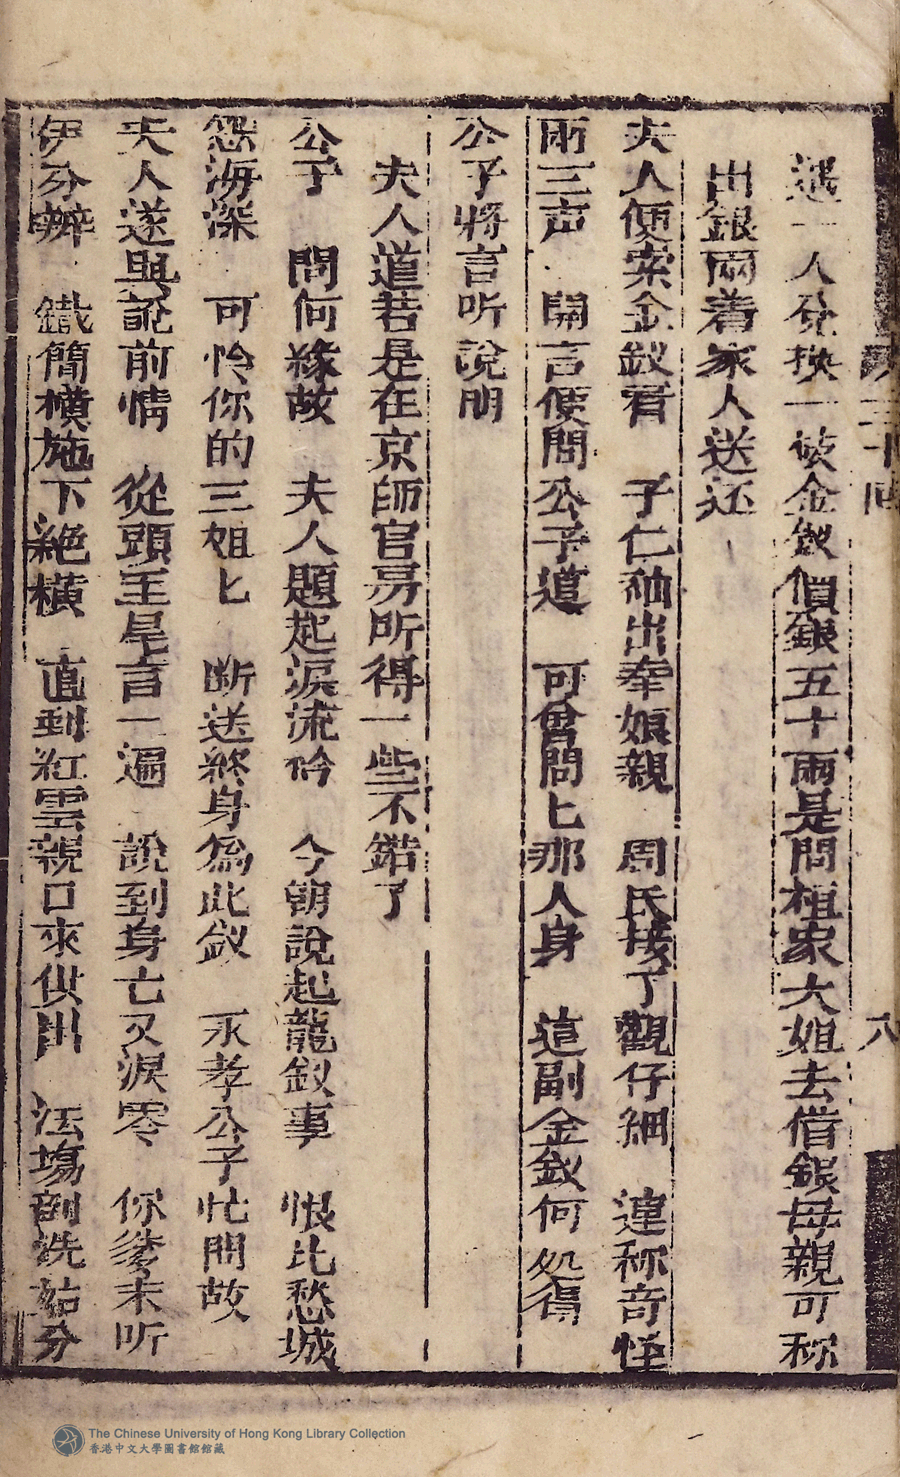 遇一人兌換一彼金釵價銀五十兩是問桓家大姐去借銀母親可称
出銀兩着家人送还
夫人便索金釵看 子仁袖出奉娘親 周氏接了觀仔細 連称奇怪
兩三声 開言便問公子道 可曾問匕那人身 這副金釵何処得
公子將言听說明
夫人道若是在京師官房所得一些不錯了
公子 問何緣故 夫人題起淚流吟 今朝說起龍釵事 恨比愁城
怨海深 可怜你的三姐匕 断送終身為此釵 永孝公子忙問故
夫人遂與說前情 從頭至尾言一遍 說到身亡又淚零 你爹未听
伊分辨 鐵簡橫施下絕橫 直到紅雲親口來供出 法塲剖洗姑分
三十回
八
The Chinese University of Hong Kong Library Collection
香港中文大學圖書館館藏